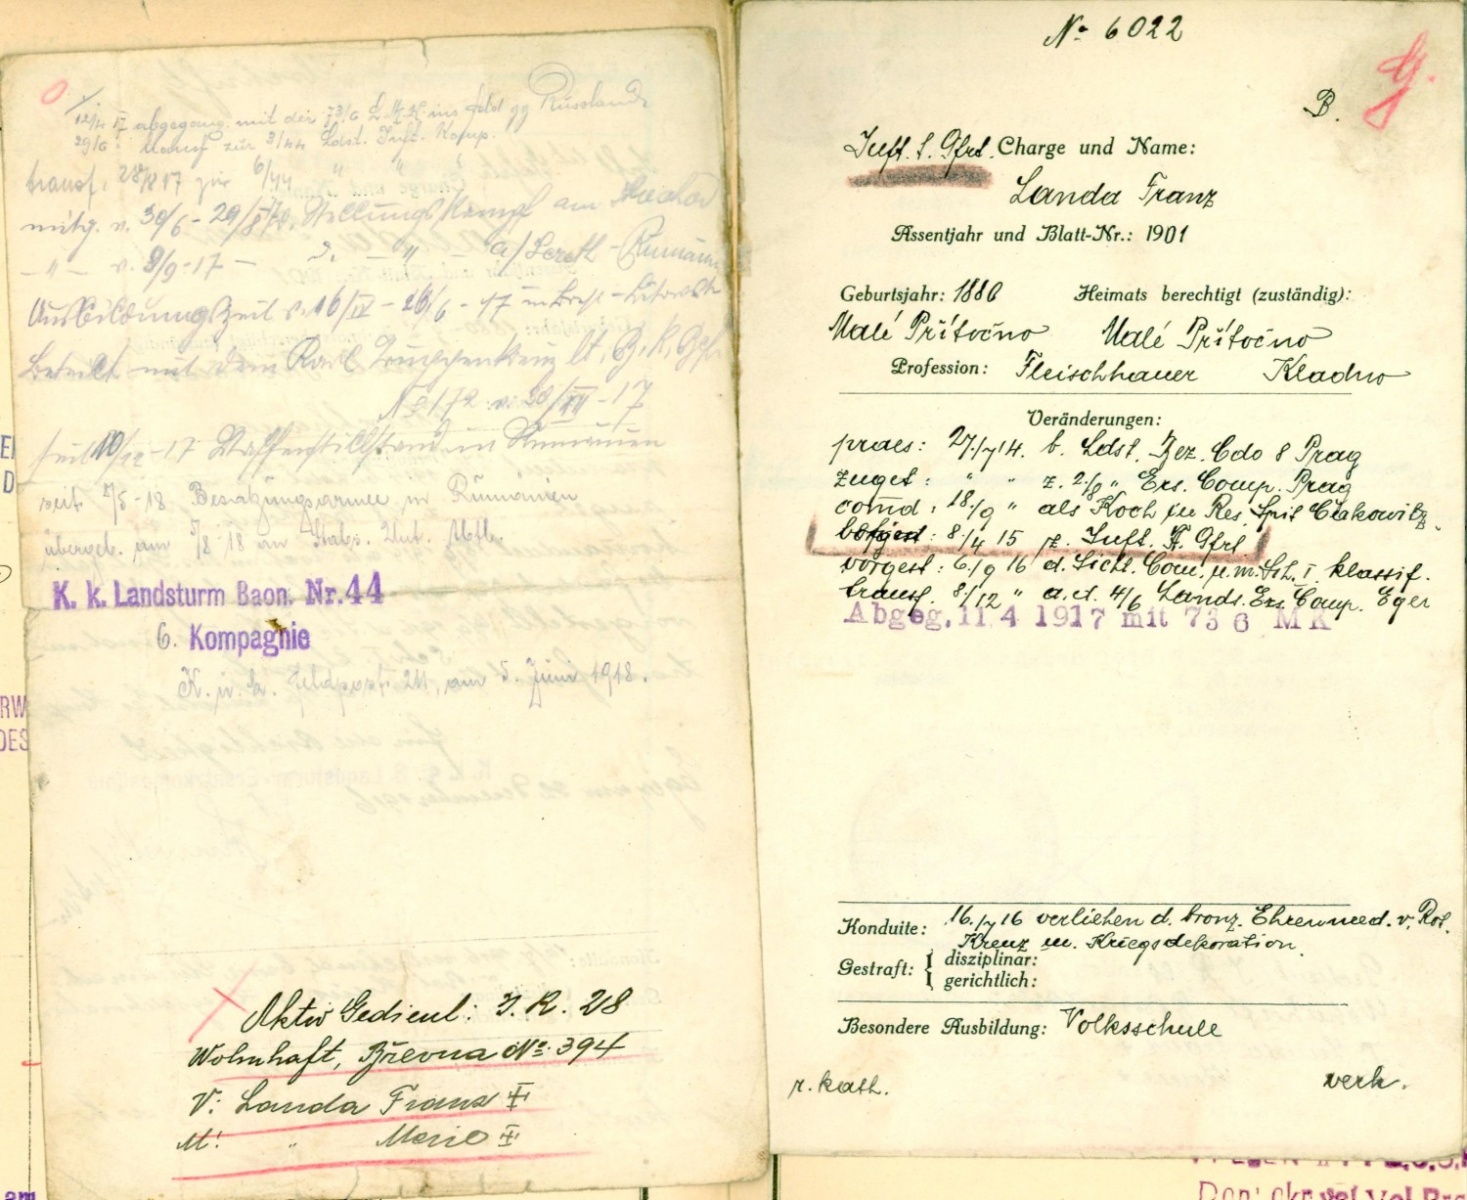 12/4 17 abgegang. mit der 73/6 ins Feld gg Russland
29/6 transf zur 3/44 Ldst. Inft. Komp.
transf. 28/8 17 zur 6/44 " "
mitg. v. 30/6 - 29/8 17 Stellungskampf am
- " - v. 8/9-17 - d. - " - a/Sereth - Rumänien
Ausbildungszeit v. 16/IV - 26/6 - 17 in Brest-Litowsk
Beteilt mit dem Karl Truppenkreuz lt.
No 172 v. 20/XII - 17
seit 10/12 - 17 Waffenstillstand in Rumänien
seit 7/5 - 18 Besatzungsarmee in Rumänien
übergeb. am 5/8 18 an
K. k. Landsturm Baon. Nr. 44
6. Kompagnie
K. u. k. Feldpost 211, am 5. Juni 1918.
Aktiv Gedient: I. R. 28
Wohnhaft, Břevna No: 394
V: Landa Franz ‡
M: " Marie ‡
No 6022
B.
Inft. T. Gfrt. Charge und Name:
Landa Franz
Assentjahr und Blatt-Nr.: 1901
Geburtsjahr: 1880 Heimats berechtigt (zuständig):
Malé Přítočno Malé Přítočno
Profession: Fleischhauer Kladno
Veränderungen:
praes: 27./7 14. b. Ldst. Bez. Cdo 8 Prag
zuget: " " z. 2/8 " Ers. Comp. Prag
comd: 18./9 " als Koch in Res. Spit. Čakowitz
8/4 15 z. Inft. T. Gfrt
vorgest: 6./9 16 d. Sicht. Com. u. m. Sch. I klassif.
transf. 8./12 " a. d. 4/6 Lands. Ers. Comp. Eger
Abgeg. 11 4 1917 mit 73 6 MK
Konduite: 16./7 16 verliehen d. bronz. Ehrenmed. v. Rot.
Kreuz m. Kriegsdekoration.
Gestraft: { disziplinar:
gerichtlich:
Besondere Ausbildung: Volksschule
r. kath. verh.